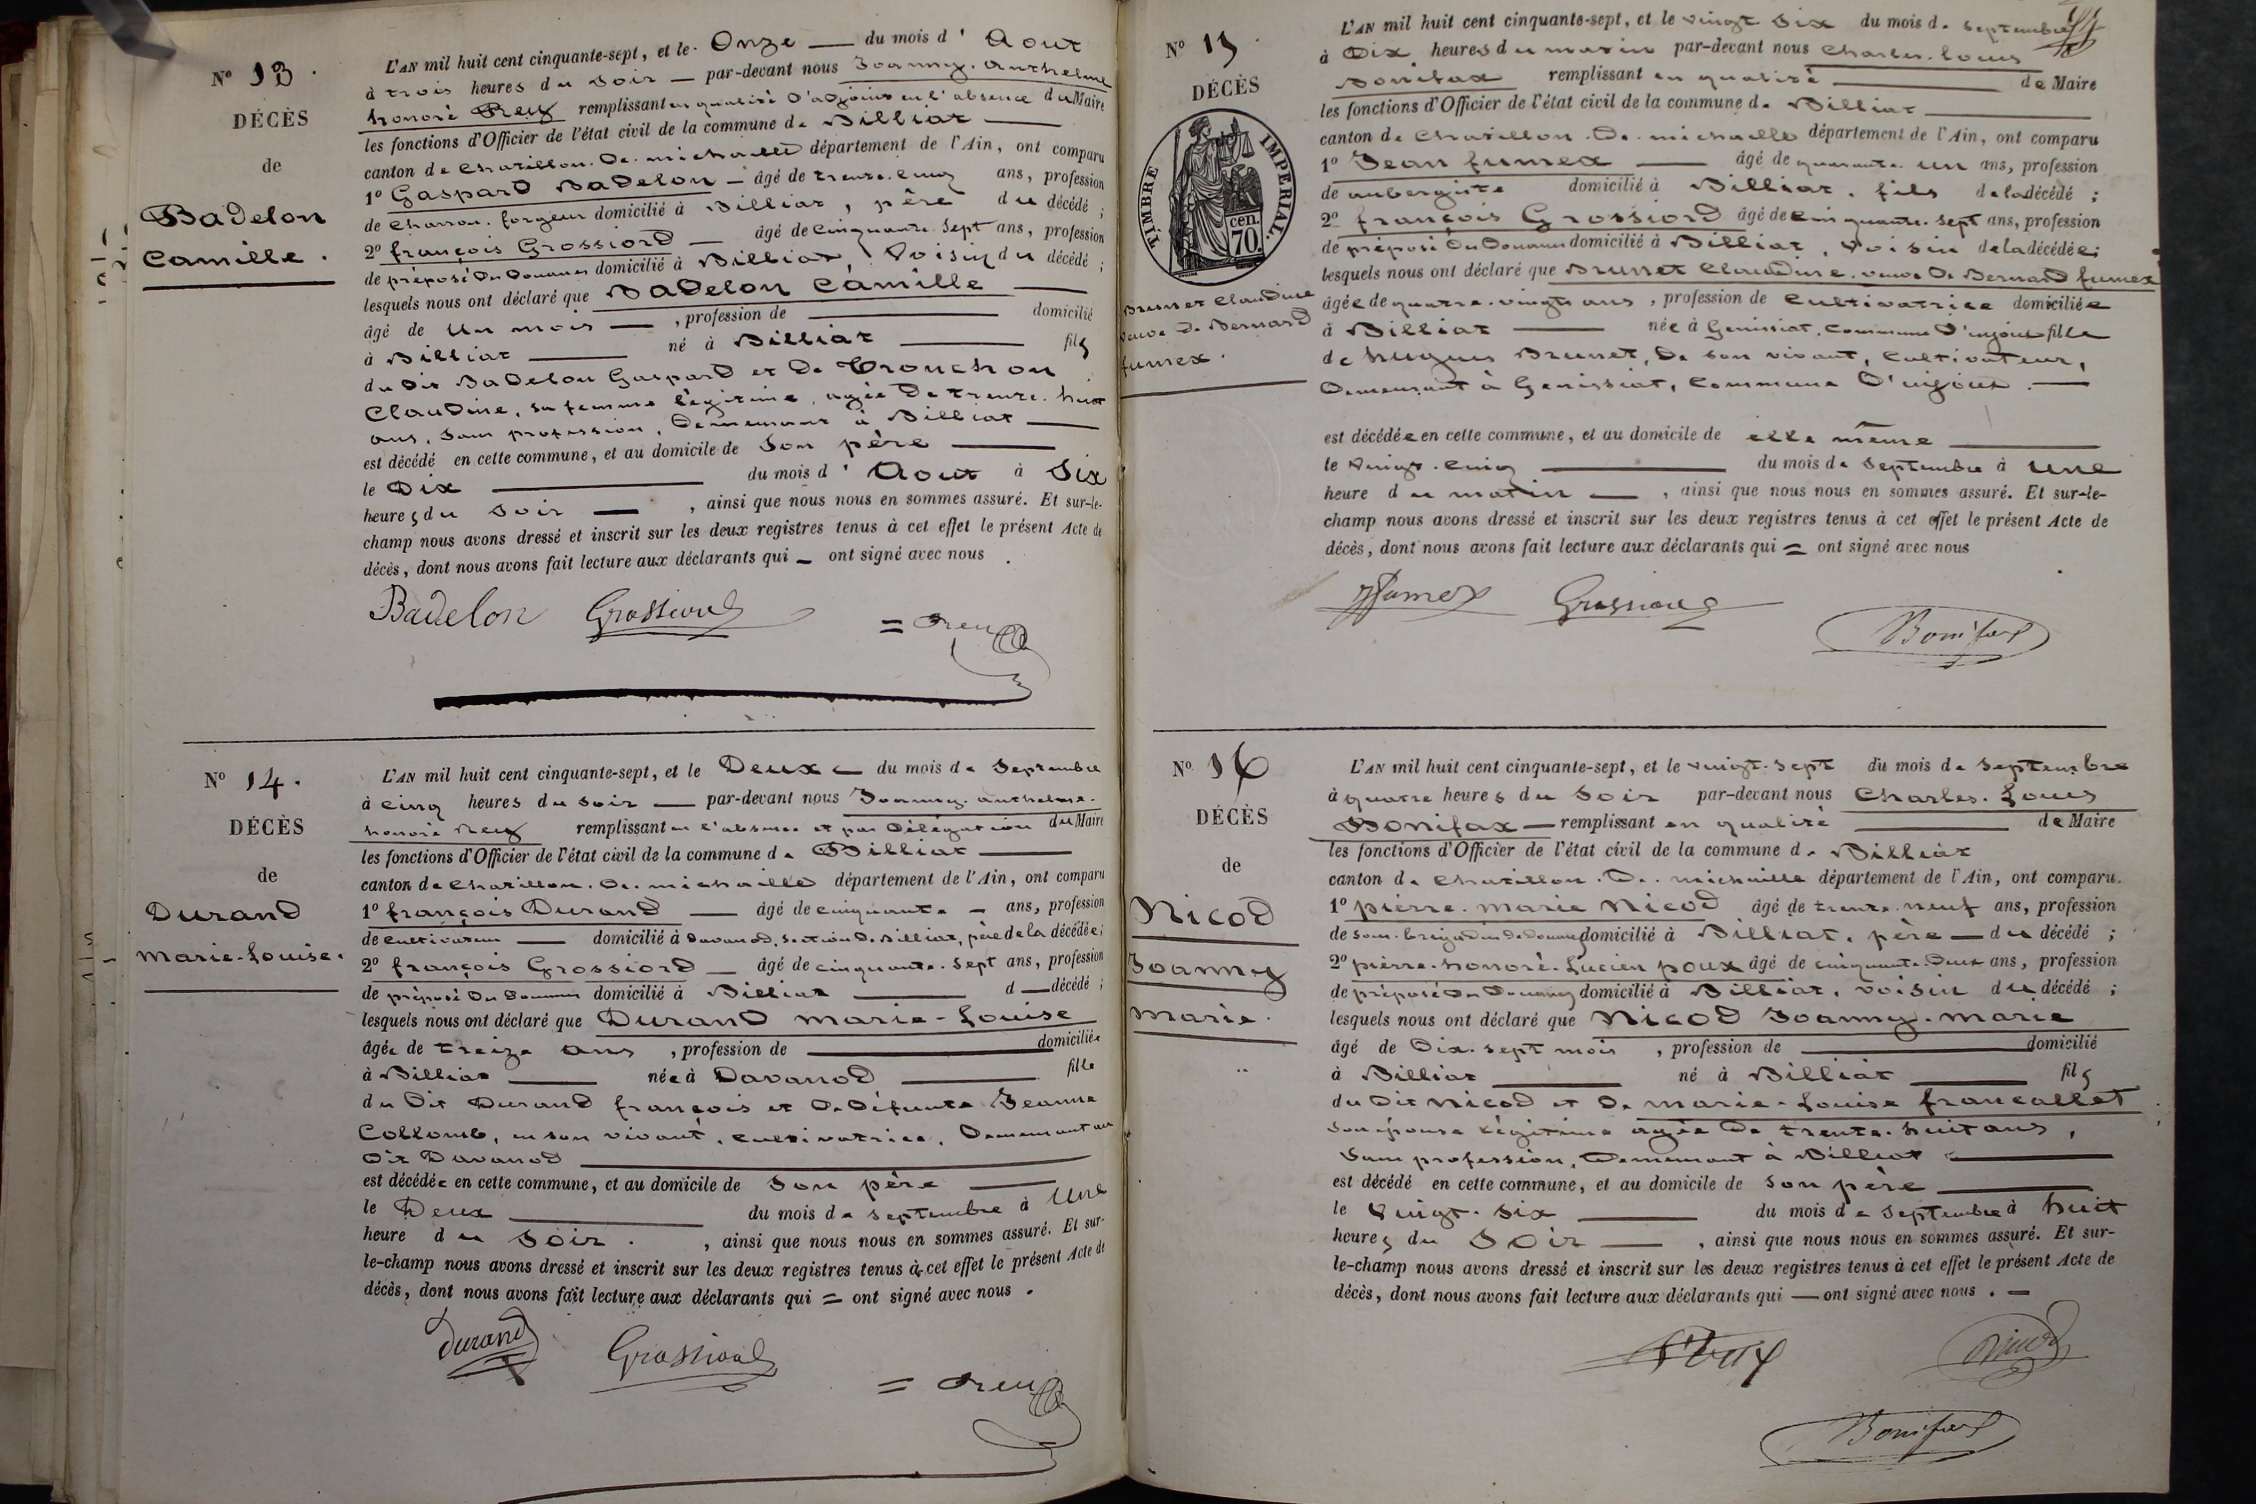 Nº 13.
DÉCÈS
de
Badelon
Camille.
L'AN mil huit cent cinquante-sept, et le Onze du mois d'Aout
à trois heures du soir par-devant nous Joanny-anthelme
honoré Rey remplissant en qualité d'adjoint en l'absence du Maire
les fonctions d'Officier de l'état civil de la commune de Billiat
canton de Chatillon-de-michaille département de l'Ain, ont comparu
1º Gaspard Badelon âgé de trente-cinq ans, profession
de Charron-forgeur domicilié à Billiat, père du décédé;
2º françois Grossiord âgé de cinquante-sept ans, profession
de préposé des Douanes domicilié à Billiat, Voisin du décédé;
lesquels nous ont déclaré que Badelon Camille
âgé de un mois, profession de domicilié
à Billiat né à Billiat fils
du dit Badelon Gaspard et de Trouchon
Claudine, sa femme légitime, agée de trente-huit
ans, sans profession, demeurant à Billiat
est décédé en cette commune, et au domicile de son père
le Dix du mois d'Aout à Six
heures du soir, ainsi que nous nous en sommes assuré. Et sur-le-
champ nous avons dressé et inscrit sur les deux registres tenus à cet effet le présent Acte de
décès, dont nous avons fait lecture aux déclarants qui ont signé avec nous.
Badelon Grossiord = Rey
Nº 14.
DÉCÈS
de
Durand
marie-Louise.
L'AN mil huit cent cinquante-sept, et le Deux du mois de Septembre
à cinq heures du soir par-devant nous Joanny-anthelme-
honoré Rey remplissant en l'absence et par délégation du Maire
les fonctions d'Officier de l'état civil de la commune de Billiat
canton de Chatillon-de-michaille département de l'Ain, ont comparu
1º françois Durand âgé de cinquante ans, profession
de cultivateur domicilié à Davanod, section de Billiat, père de la décédée;
2º françois Grossiord âgé de cinquante-sept ans, profession
de préposé des Douanes domicilié à Billiat d décédé;
lesquels nous ont déclaré que Durand marie-Louise
âgée de treize ans, profession de domiciliée
à Billiat née à Davanod fille
du dit Durand françois et de défunte Jeanne
Collomb, en son vivant, cultivatrice, demeurant au
dit Davanod
est décédée en cette commune, et au domicile de son père
le Deux du mois de septembre à une
heure du soir, ainsi que nous nous en sommes assuré. Et sur-
le-champ nous avons dressé et inscrit sur les deux registres tenus à cet effet le présent Acte de
décès, dont nous avons fait lecture aux déclarants qui = ont signé avec nous.
Durand Grossiord = Rey
Nº 15
DÉCÈS
TIMBRE IMPÉRIAL.
cen.
70.
Brunet Claudine
veuve de Bernard
fumex.
L'AN mil huit cent cinquante-sept, et le vingt-six du mois de septembre
à Dix heures du matin par-devant nous Charles-Louis
Bonifax remplissant en qualité de Maire
les fonctions d'Officier de l'état civil de la commune de Billiat
canton de Chatillon-de-michaille département de l'Ain, ont comparu
1º Jean fumex âgé de quarante-un ans, profession
de aubergiste domicilié à Billiat, fils de la décédé;
2º françois Grossiord âgé de cinquante-sept ans, profession
de préposé des Douanes domicilié à Billiat, voisin de la décédée;
lesquels nous ont déclaré que Brunet Claudine, veuve de Bernard fumex
âgée de quatre-vingts ans, profession de cultivatrice domiciliée
à Billiat née à Genissiat, commune d'injoux fille
de hugues Brunet, de son vivant, cultivateur,
demeurant à Genissiat, commune d'injoux.
est décédée en cette commune, et au domicile de elle même
le vingt-cinq du mois de septembre à une
heure du matin, ainsi que nous nous en sommes assuré. Et sur-le-
champ nous avons dressé et inscrit sur les deux registres tenus à cet effet le présent Acte de
décès, dont nous avons fait lecture aux déclarants qui = ont signé avec nous
Fumex Grossiord
Bonifax
Nº 16
DÉCÈS
de
Nicod
Joanny
marie.
L'AN mil huit cent cinquante-sept, et le vingt-sept du mois de septembre
à quatre heures du soir par-devant nous Charles-Louis
Bonifax remplissant en qualité de Maire
les fonctions d'Officier de l'état civil de la commune de Billiat
canton de Chatillon-de-michaille département de l'Ain, ont comparu.
1º pierre-marie Nicod âgé de trente-neuf ans, profession
de sous-brigadier de Douanes domicilié à Billiat, père du décédé;
2º pierre-honoré-Lucien poux âgé de cinquante-deux ans, profession
de préposé des Douanes domicilié à Billiat, voisin du décédé;
lesquels nous ont déclaré que Nicod Joanny-marie
âgé de Dix-sept mois, profession de domicilié
à Billiat né à Billiat fils
du dit Nicod et de marie-Louise francallet
son épouse légitime agée de trente-huit ans,
sans profession, demeurant à Billiat
est décédé en cette commune, et au domicile de son père
le vingt-six du mois de septembre à huit
heures du soir, ainsi que nous nous en sommes assuré. Et sur-
le-champ nous avons dressé et inscrit sur les deux registres tenus à cet effet le présent Acte de
décès, dont nous avons fait lecture aux déclarants qui ont signé avec nous.
Poux Nicod
Bonifax